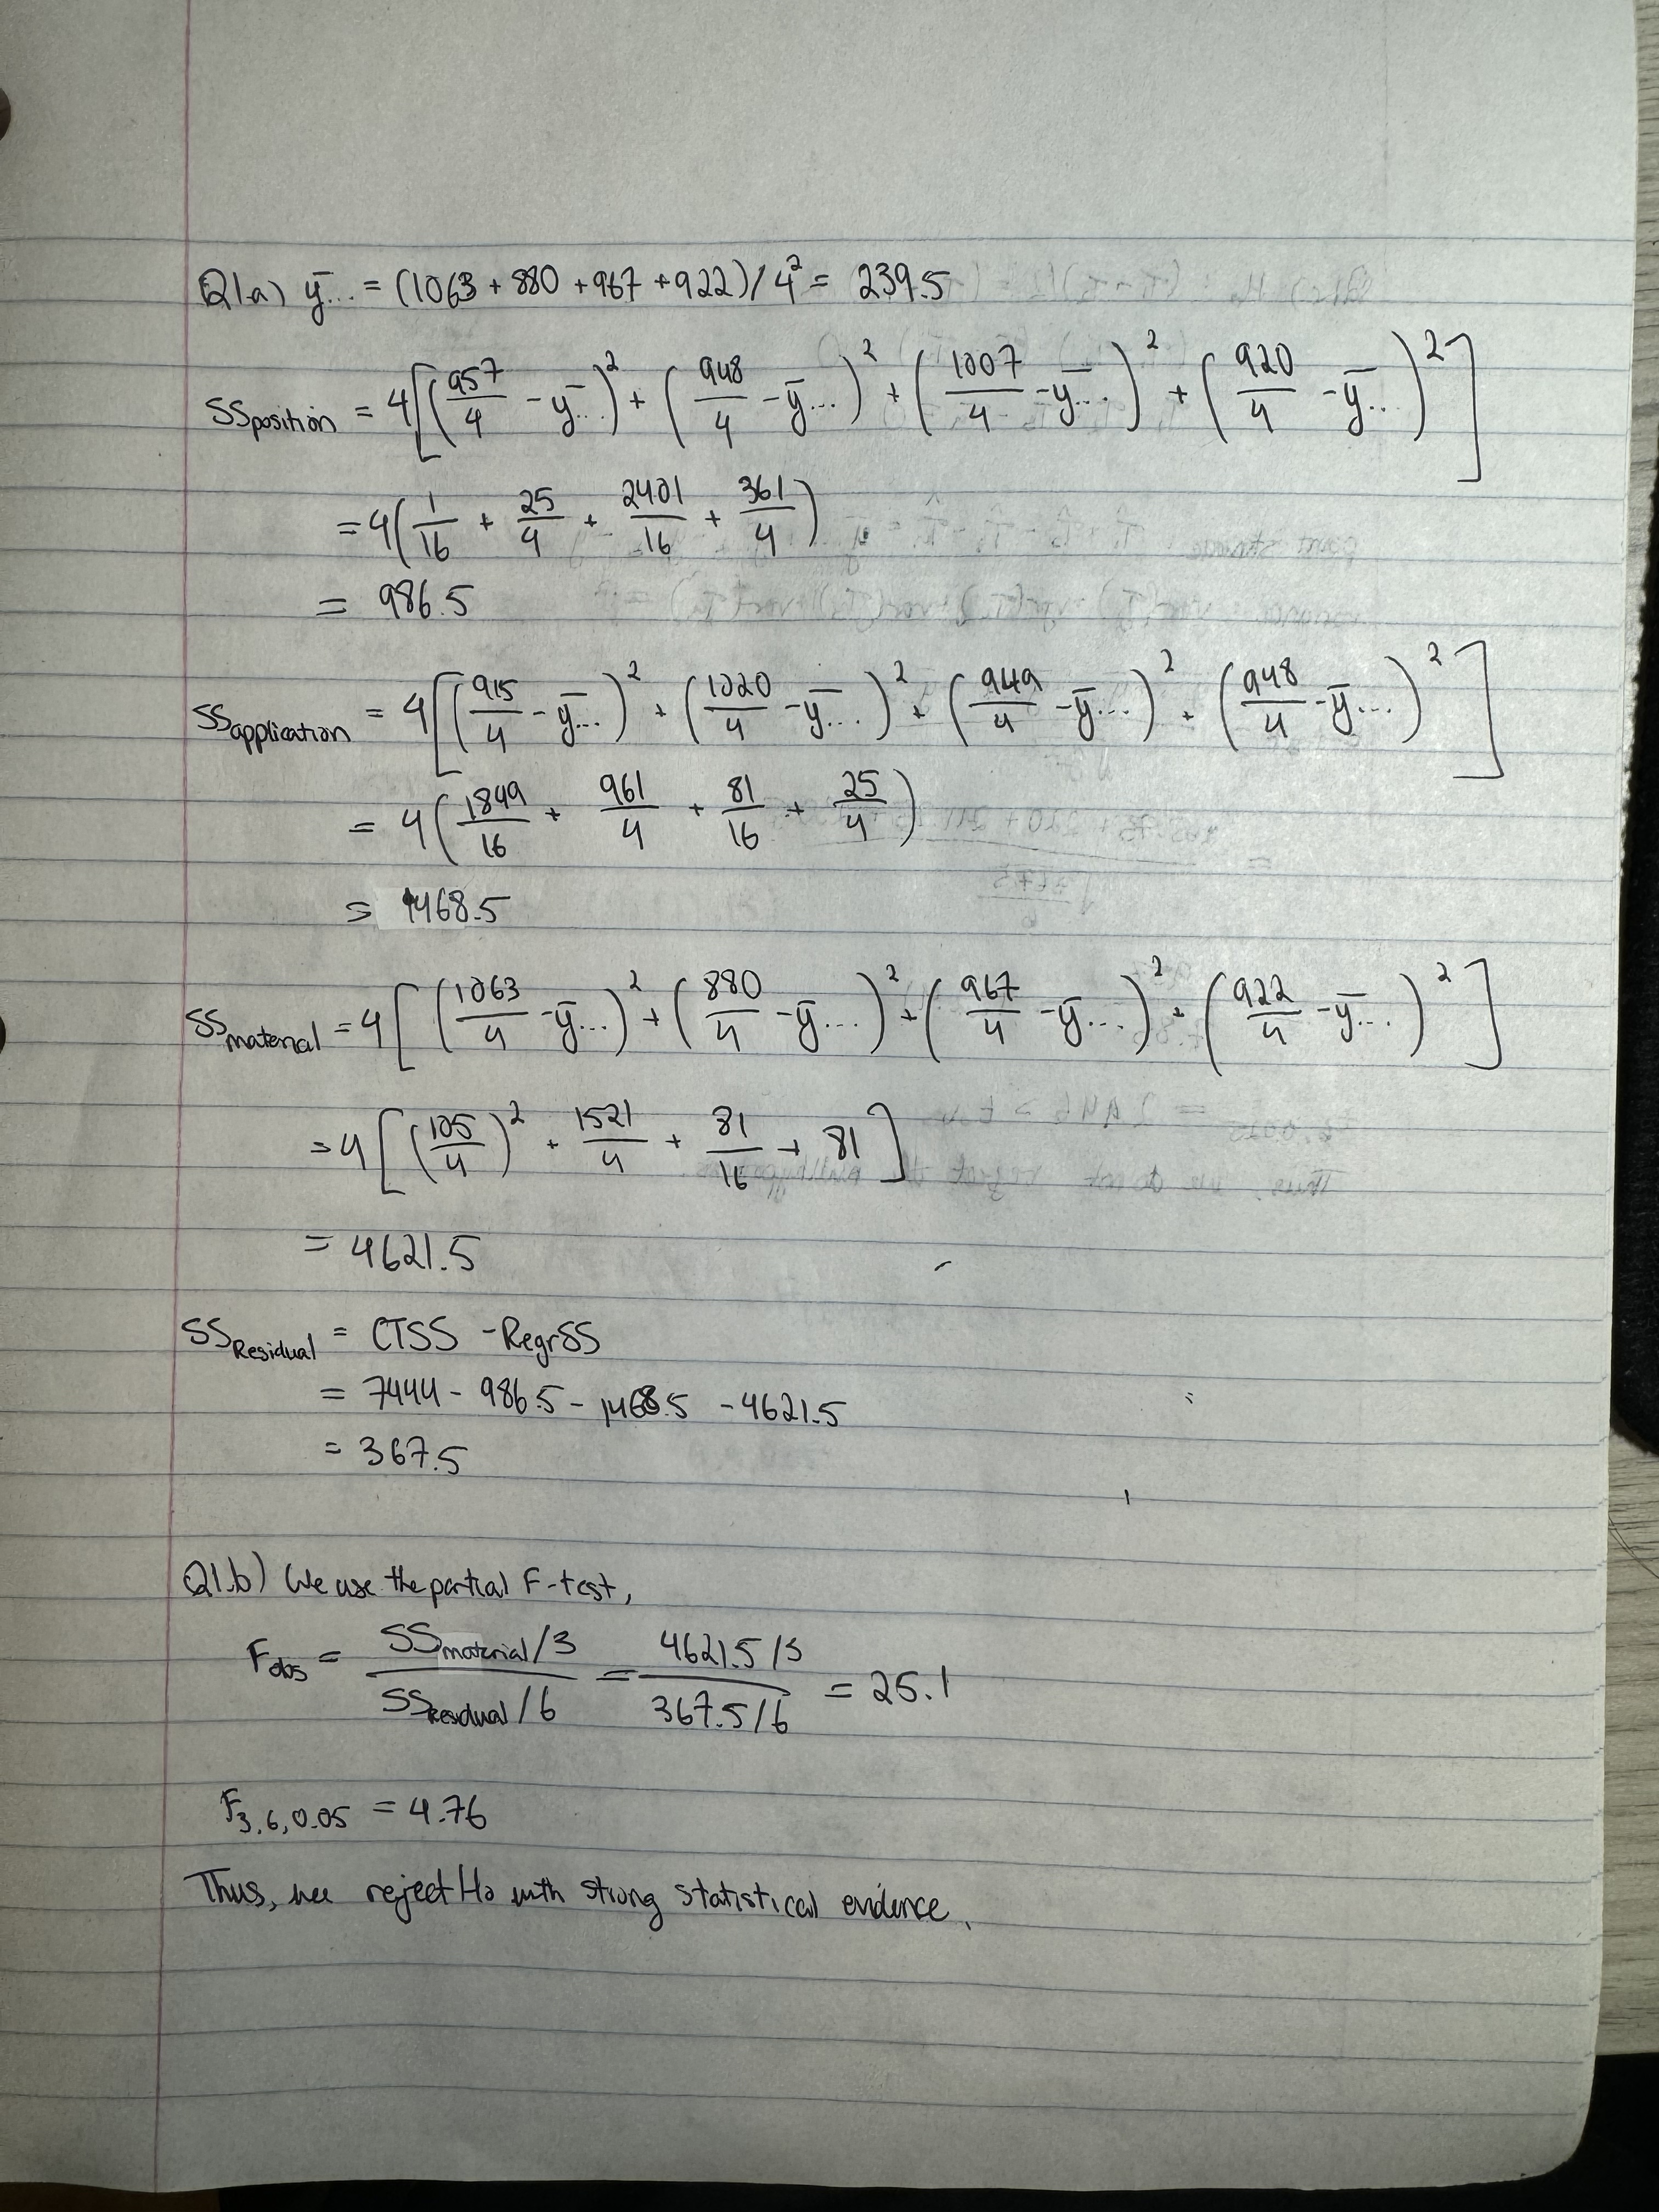 Q1.a) ȳ... = (1063 + 880 + 967 + 922) / 4² = 239.5
SSposition = 4[(957/4 - ȳ...)² + (948/4 - ȳ...)² + (1007/4 - ȳ...)² + (920/4 - ȳ..)²]
= 4(1/16 + 25/4 + 2401/16 + 361/4)
= 986.5
SSapplication = 4[(915/4 - ȳ...)² + (1020/4 - ȳ...)² + (949/4 - ȳ...)² + (948/4 - ȳ...)²]
= 4(1849/16 + 961/4 + 81/16 + 25/4)
= 1468.5
SSmaterial = 4[(1063/4 - ȳ...)² + (880/4 - ȳ...)² + (967/4 - ȳ...)² + (922/4 - ȳ...)²]
= 4[(105/4)² + 1521/4 + 81/16 + 81]
= 4621.5
SSResidual = CTSS - RegrSS
= 7444 - 986.5 - 1468.5 - 4621.5
= 367.5
Q1.b) We use the partial F-test,
Fobs = (SSmaterial/3)/(SSResidual/6) = (4621.5/3)/(367.5/6) = 25.1
F3,6,0.05 = 4.76
Thus, we reject H0 with strong statistical evidence.